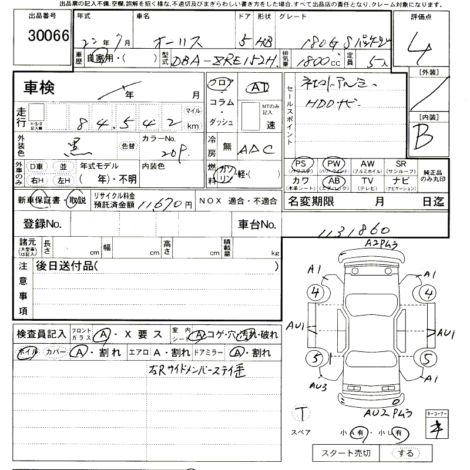 出品者の記入不備、空欄、誤解を招く様な、不適切及びまぎらわしい書き方を致しますと、すべて出品店の責任となり、クレーム対象になります。
出品番号 年式 車名 ドア 形状 グレード 評価点
30066 22年 7月 オーリス 5 HB 180G Sパッケージ 4
車歴 自家用・( ) 型式 DBA-ZRE152H 排気量 1800cc 定員 5人
車検 年 月 フロア・コラム・ダッシュ AT MTのみ記入 速 セールスポイント 社外アルミ 【外装】
HDDナビ
走行 84542 マイル km
外装色 黒 色替 カラーNo. 209 冷房 無 AAC 【内装】 B
外車のみ D車 並 年式モデル 内装色 ガソリン PS PW AW SR 純正品のみ丸印
右H 左H (年)・不明 カワ AB TV ナビ
新車保証書・取説 リサイクル料金預託済金額 11,670円 NOX 適合・不適合 名変期限 月 日迄
登録No. 車台No. 1131860
諸元 長さ cm 幅 cm 高さ cm 積載量 kg
注意事項 後日送付品( )
A2 P43
A1 A1
4 4
AU1 AU1
5 5
AU3 A1
AU2 P43
検査員記入 フロントガラス A・X要ス 室内シート A コゲ・穴・汚れ・破れ
ホイル カバー A・割れ エアロ A・割れ ドアミラー A・割れ
右Rサイドメンバーステイ歪
T
スペア 小A有 小U有 キ
スタート売切 する